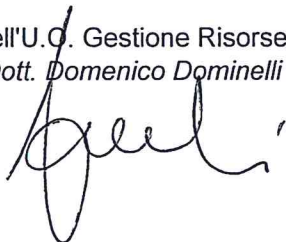 ell'U.O. Gestione Risorse
Dott. Domenico Dominelli